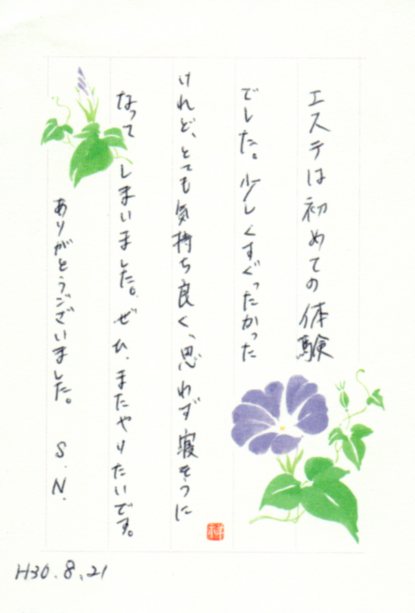 エステは初めての体験
でした。少しくすぐったかった
けれど、とても気持ち良く、思わず寝そうに
なってしまいました。ぜひ、またやりたいです。
ありがとうございました。 S.N.
H30.8.21